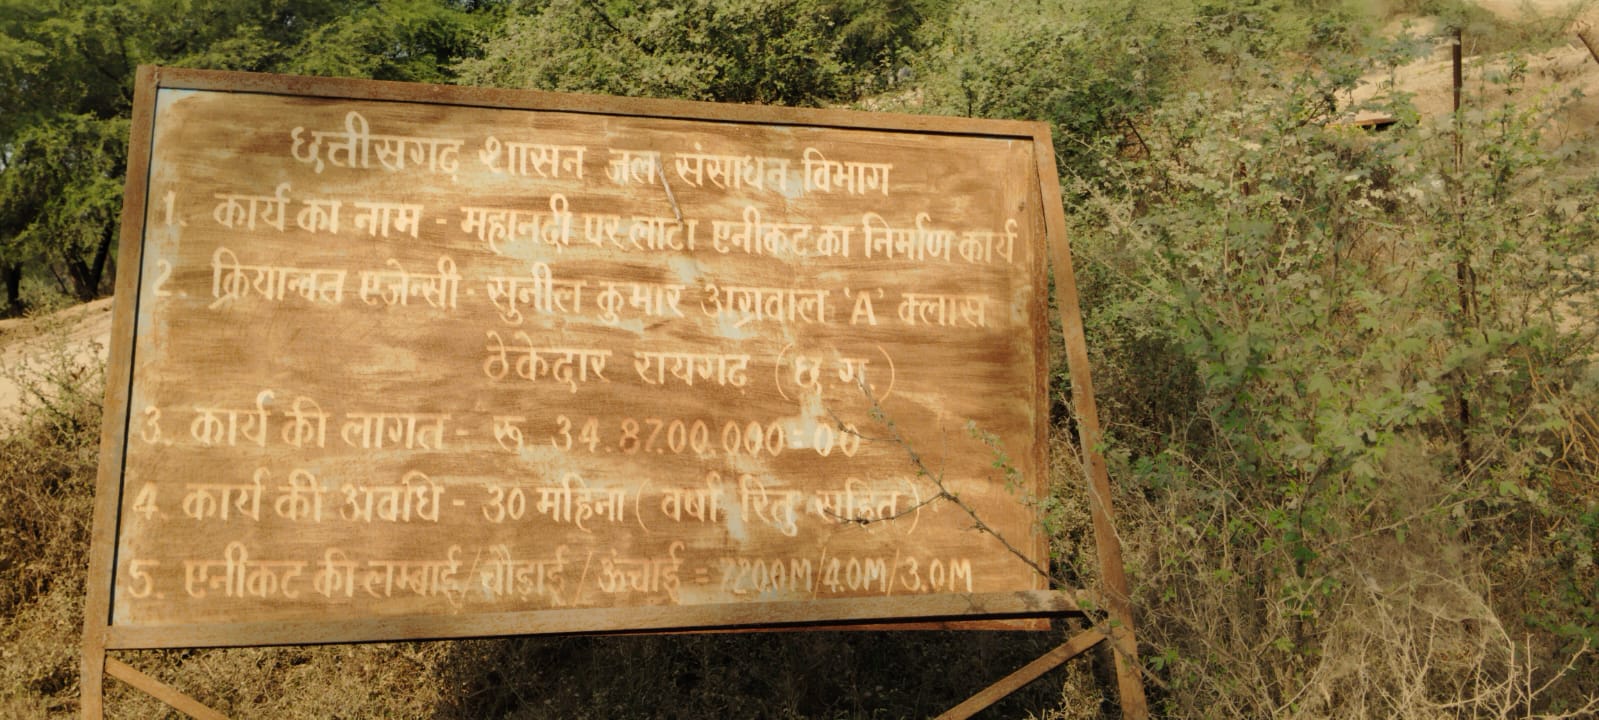 छत्तीसगढ़ शासन जल संसाधन विभाग
1. कार्य का नाम - महानदी पर लाटा एनीकट का निर्माण कार्य
2. क्रियान्वत एजेन्सी - सुनील कुमार अग्रवाल 'A' क्लास
ठेकेदार रायगढ (छ.ग.)
3. कार्य की लागत - रू 34.87.00.000=00
4. कार्य की अवधि - 30 महिना ( वर्षा रितु सहित )
5. एनीकट की लम्बाई/चौड़ाई/ऊंचाई = /4.0M/3.0M